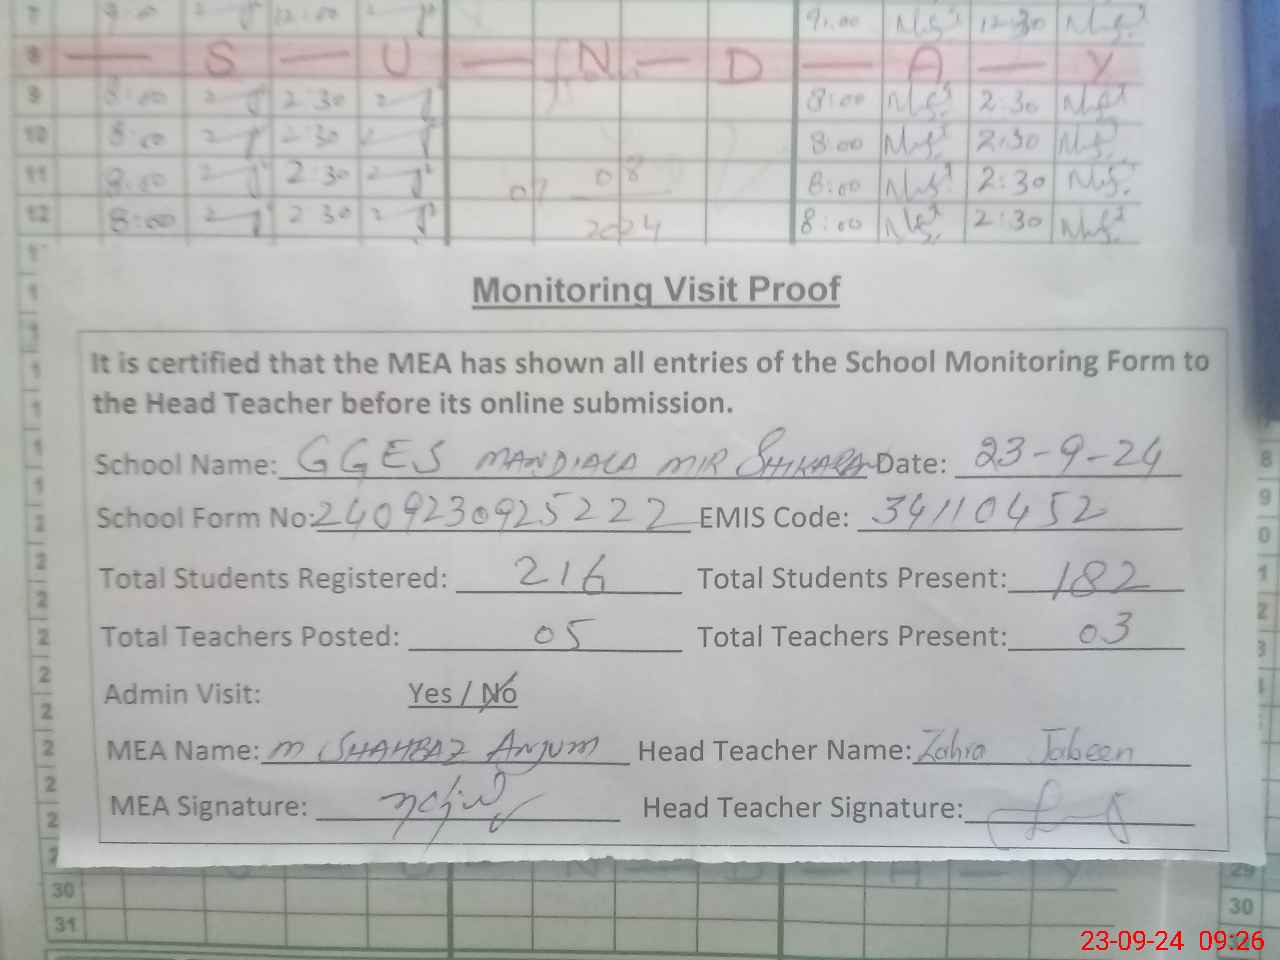 7 9:00 12:00 9:00 12:30
8 — S — U — N — D — A — Y
9 8:00 2:30 8:00 2:30
10 8:00 2:30 8:00 2:30
11 8:00 2:30 07 08 8:00 2:30
12 8:00 2:30 2024 8:00 2:30
Monitoring Visit Proof
It is certified that the MEA has shown all entries of the School Monitoring Form to
the Head Teacher before its online submission.
School Name: GGES MANDIALA MIR SHIKARA Date: 23-9-24
School Form No: 2409230925222 EMIS Code: 34110452
Total Students Registered: 216 Total Students Present: 182
Total Teachers Posted: 05 Total Teachers Present: 03
Admin Visit: Yes / No
MEA Name: M SHAHBAZ ANJUM Head Teacher Name: Zahra Jabeen
MEA Signature: Head Teacher Signature:
29
30 30
31
23-09-24 09:26